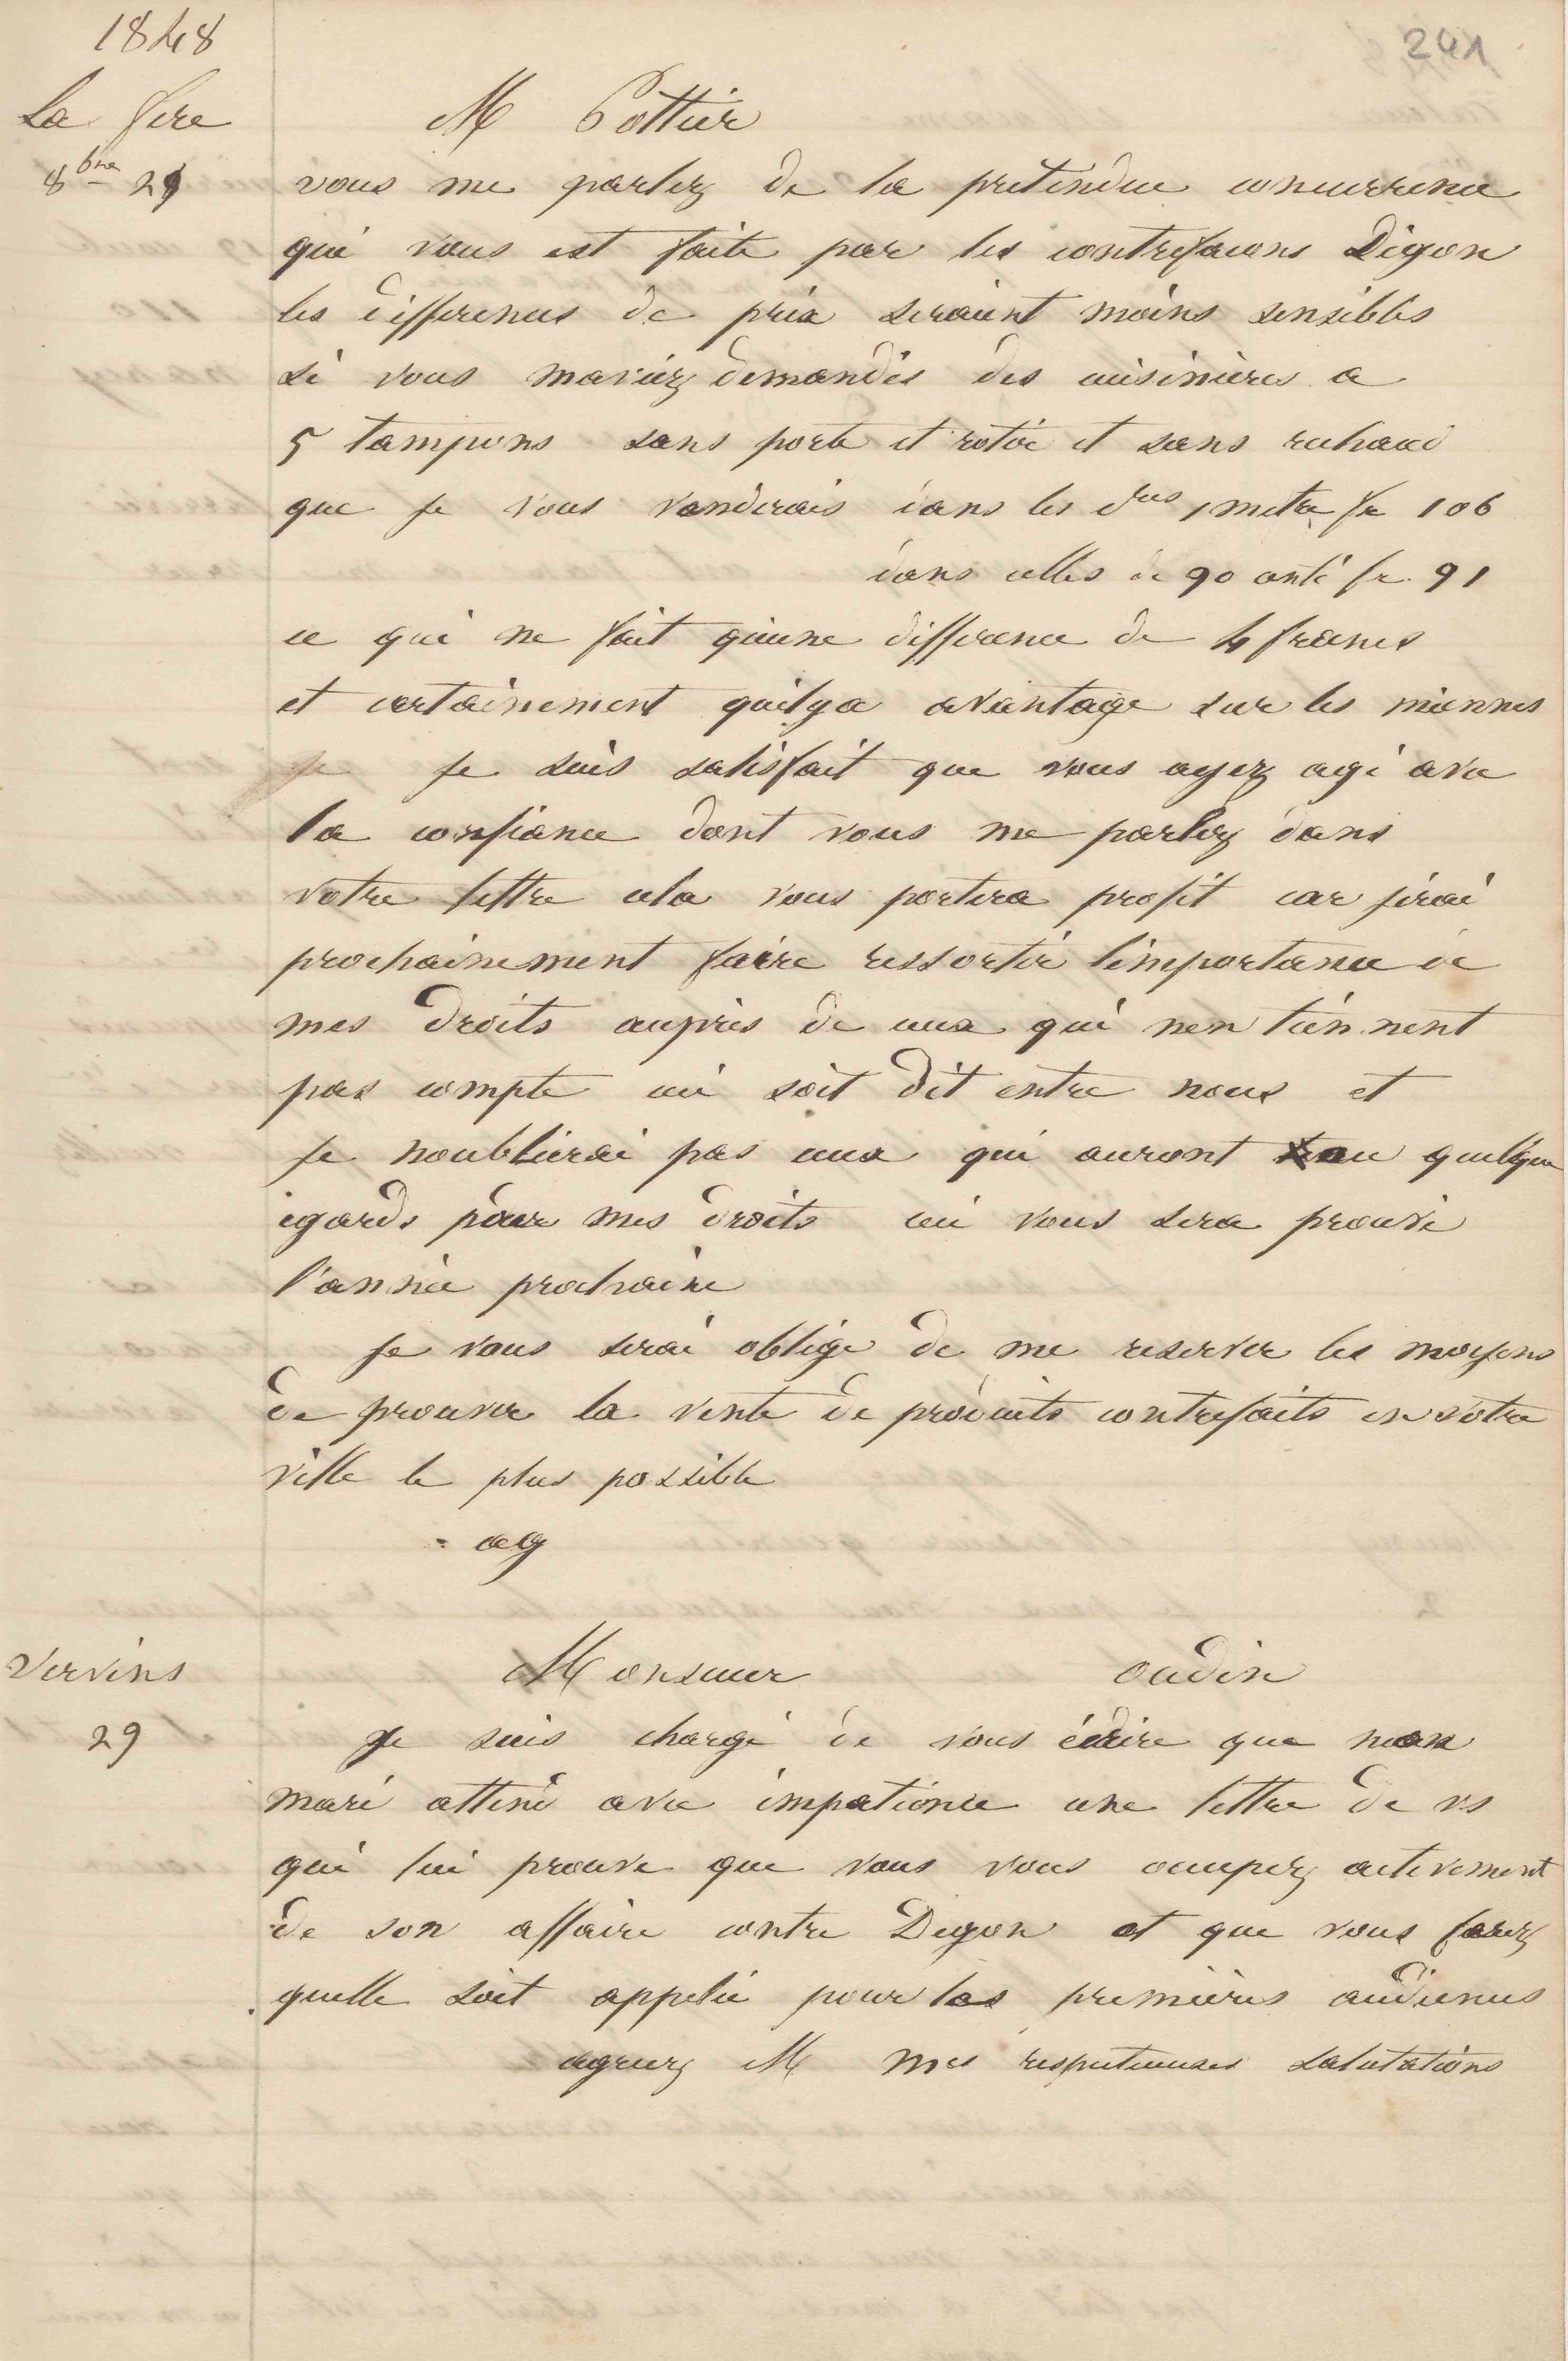 1848
241
La fere
M Pottier
8bre 29
vous me parlez de la pretendue concurrence
qui vous est faite par les contrefacons Degon
les differences de prix seraient moins sensibles
si vous maviez demandés des cuisinieres a
5 tampons sans porte et rotoir et sans rechaud
que je vous vendrais dans les dtes 1 metre fr 106
dans celles de 90 centi fr. 91
ce qui ne fait quune difference de 4 francs
et certainement quilya avantage sur les miennes
je je suis satisfait que vous ayez agi avec
la confiance dont vous me parlez dans
votre lettre cela vous portera profit car jirai
prochainement faire ressortir limportance de
mes droits auprès de ceux qui nen tiennent
pas compte ceci soit dit entre nous et
je noublierai pas ceux qui auront eu quelque
egards pour mes droits ceci vous sera prouvé
l'année prochaine
je vous serai obligé de me reserver les moyens
de prouver la vente de produits contrefaits en votre
ville le plus possible
ag
Vervins
Monsieur oudin
29
je suis chargé de vous écrire que mon
mari attend avec impatience une lettre de vs
qui lui prouve que vous vous occupez activement
de son affaire contre Degon et que vous ferez
quelle soit appelée pour les premières audiences
agreez M mes respectueuses salutations